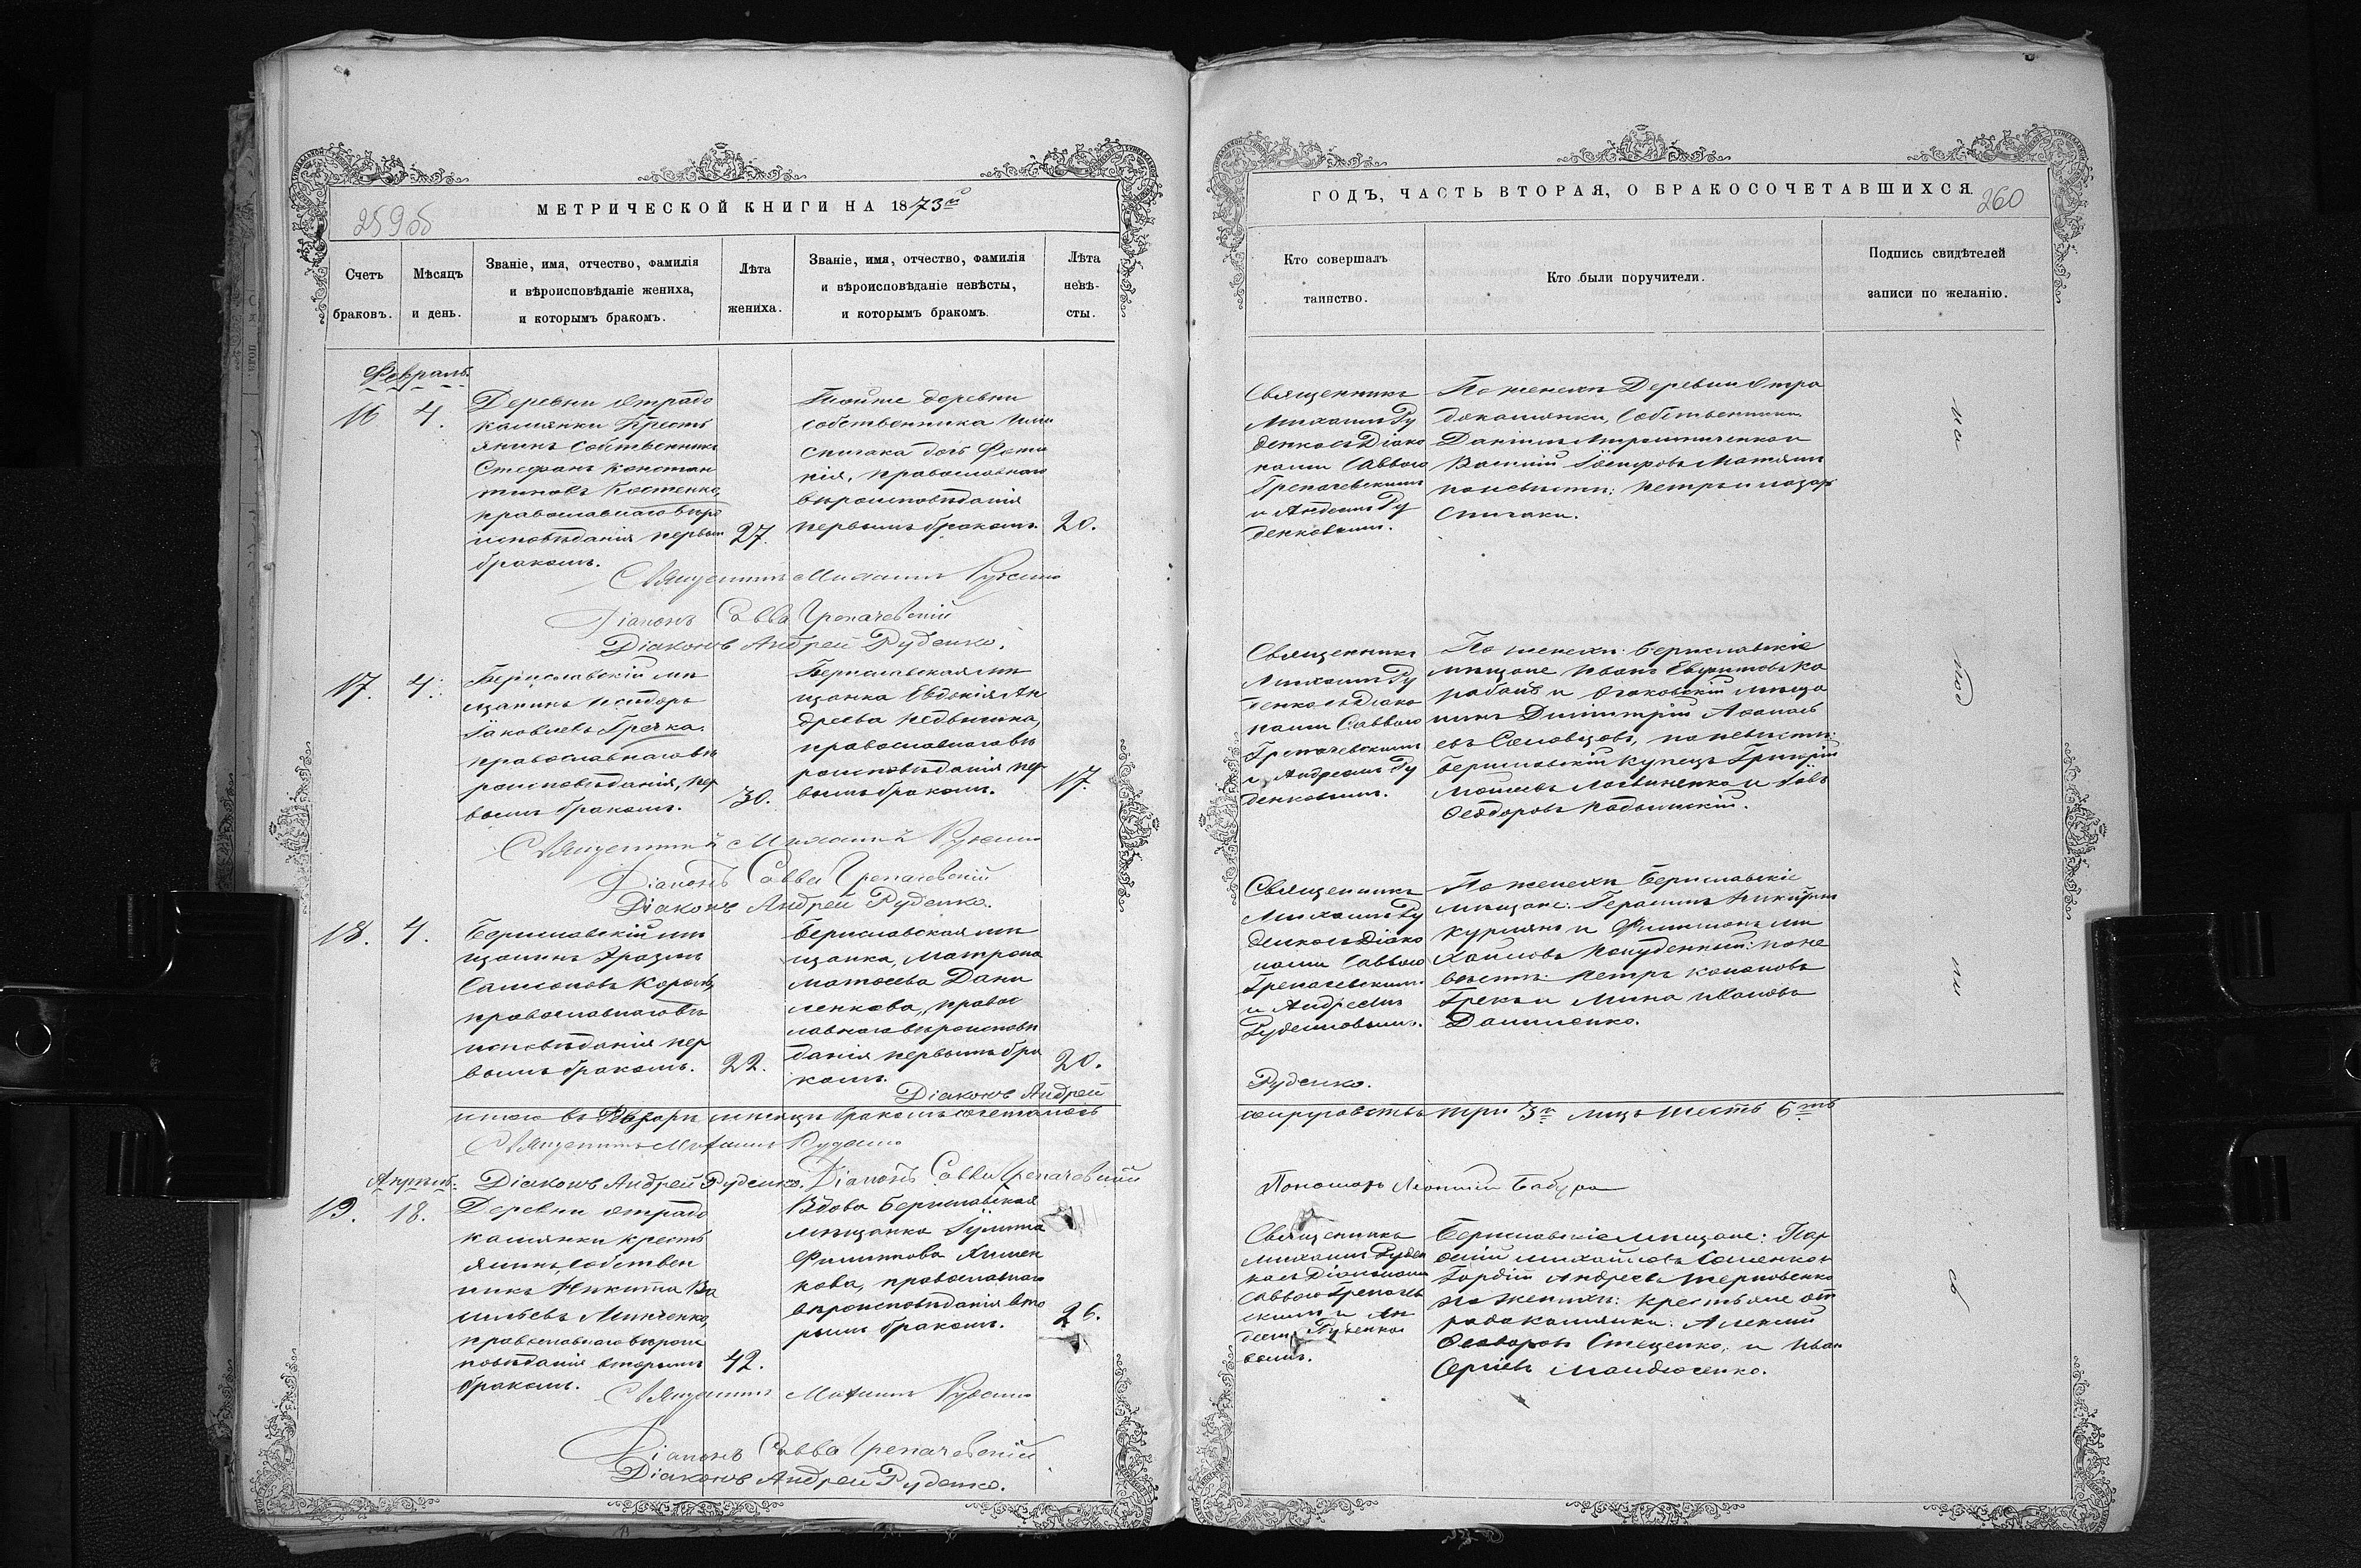 259об
МЕТРИЧЕСКОЙ КНИГИ НА 1873й
Счетъ
браковъ.
Мѣсяцъ
и день.
Званіе, имя, отчество, фамилія
и вѣроисповѣданіе жениха,
и которымъ бракомъ.
Лѣта
жениха.
Званіе, имя, отчество, фамилія
и вѣроисповѣданіе невѣсты,
и которымъ бракомъ.
Лѣта
невѣ-
сты.
Февраль.
16
4.
Деревни Отрадо
каменки Кресть
янинъ Собственникъ
Стефанъ Констан
тиновъ Костенко,
православнаго вѣро
исповѣданія первымъ
бракомъ.
27.
Тойже деревни
собственника
Спичака дочь Фоти
нія, православнаго
вѣроисповѣданія
первымъ бракомъ.
20.
Священникъ Михаилъ Руденко
Діаконъ Савва Грепачевскій
Діаконъ Андрей Руденко.
17.
4.
Бериславскій мѣ
щанинъ Исидоръ
Іаковлевъ Гречка.
православнаго вѣ
роисповѣданія, пер
вымъ бракомъ.
30.
Бериславская мѣ
щанка Евдокія Ан
дреева
православнаго вѣ
роисповѣданія пер
вымъ бракомъ.
17.
Священникъ Михаилъ Руденко
Діаконъ Савва Грепачевскій
Діаконъ Андрей Руденко.
18.
4.
Бериславскій мѣ
щанинъ Эразмъ
Самсоновъ Король,
православнаго вѣ
исповѣданія пер
вымъ бракомъ.
22.
Бериславская мѣ
щанка, Матрона
Матѳеева Дани
ленкова, правос
лавнаго вѣроисповѣ
данія первымъ бра
комъ.
20.
Діаконъ Андрей
Итого въ Феврали мѣсяцѣ бракомъ сочеталось
Священникъ Михаилъ Руденко
Апрѣль.
Діаконъ Андрей Руденко. Діаконъ Савва Грепачевскій
19.
18.
Деревни Отрадо
каменки кресть
янинъ, собствен
никъ Никита Ва
сильевъ Минченко,
православнаго вѣроис
повѣданія вторымъ
бракомъ.
42.
Вдова Бериславская
мѣщанка Іулитта
Филиппова
кова, православнаго
вѣроисповѣданія вто
рымъ бракомъ.
26.
Священникъ Михаилъ Руденко
Діаконъ Савва Грепачевскій
Діаконъ Андрей Руденко.
ГОДЪ, ЧАСТЬ ВТОРАЯ, О БРАКОСОЧЕТАВШИХСЯ
260
Кто совершалъ
таинство.
Кто были поручители.
Подпись свидѣтелей
записи по желанію.
Священникъ
Михаилъ Ру
денко съ Діако
нами Саввою
Грепачевскимъ
и Андреемъ Ру
денковымъ.
По женихѣ Деревни Отра
докаменки, Собственники
Даніилъ Мирошниченко и
Василій Іосифовъ
по невѣсти: Петръ и Лазарь
Спичаки.
Священникъ
Михаилъ Ру
денко съ Діако
нами Саввою
Грепачевскимъ
и Андреемъ Ру
денковымъ.
По женихѣ: Бериславскіе
мѣщане Иванъ Евфимовъ Ка
рабанъ и Очаковскій мѣща
нинъ Димитрій Аѳанась
евъ Соловцовъ, по невѣсти:
Бериславскій купецъ Григорій
Моисеевъ и Іовъ
Ѳеодоровъ
Священникъ
Михаилъ Ру
денко съ Діако
нами Саввою
Грепачевскимъ
и Андреемъ
Руденковымъ.
По женихѣ Бериславскіе
мѣщане: Герасимъ Никифоровъ
и Филимонъ Ми
хайловъ по не
вѣсти: Петръ Кононовъ
Грекъ и Мина Ивановъ
Даниленко.
Руденко.
супружествъ три 3 и лицъ шесть 6ть
Пономарь Бабура
Священникъ
Михаилъ Руден
ко съ Діаконами
Саввою Грепачев
скимъ и Ан
дреемъ Руденко
вымъ.
Бериславскіе мѣщане: Пар
ѳеній Михайловъ и
Гордій Андреевъ Терновенко
по женихѣ: крестьяне от
радокаменки: Алексій
Ѳеодоровъ Стеценко, и Иван
Сергіевъ